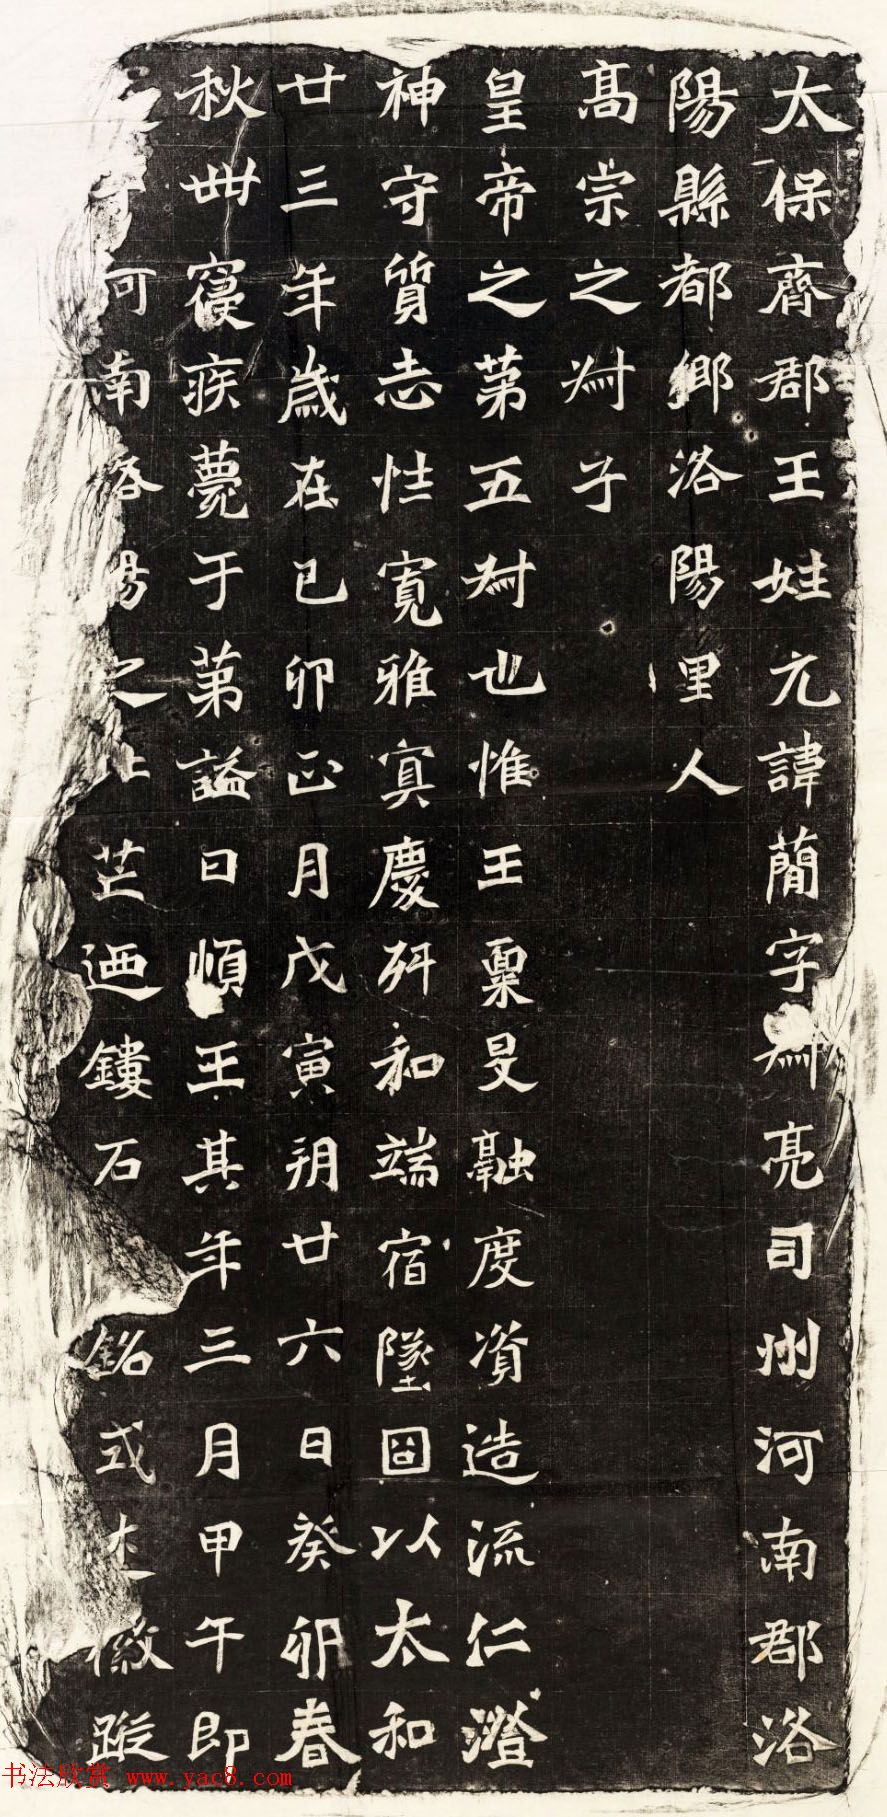 太保齊郡王姓元諱簡字叔亮司州河南郡洛
陽縣都鄉洛陽里人
高宗之叔子
皇帝之第五叔也惟王稟旻融度資造流仁澄
神守質志性寬雅寘慶舛和端宿墜固以太和
廿三年歲在己卯正月戊寅朔廿六日癸卯春
秋卌寑疾薨于第謚曰順王其年三月甲午即
河南洛陽之北芒迺鏤石銘式述徽蹤
书法欣赏 www.yac8.com